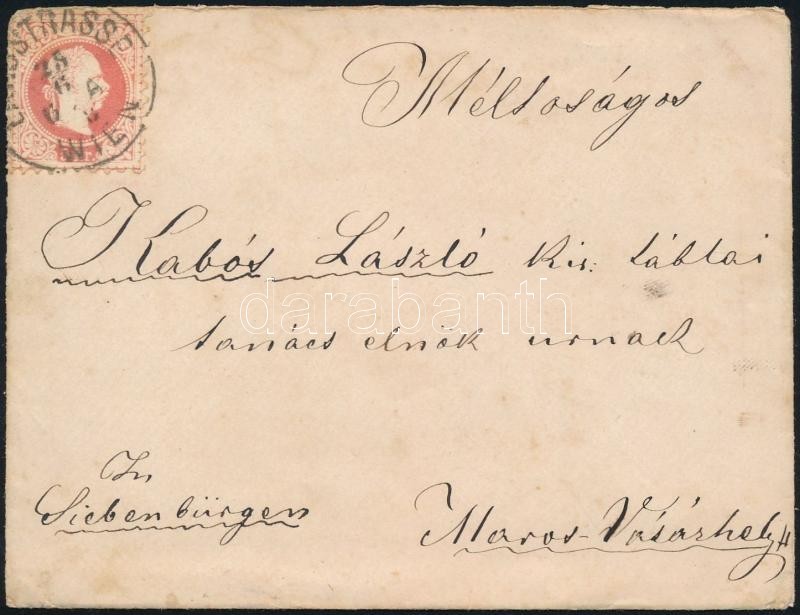 LANDSTRASSE
WIEN
Méltoságos
Kabós László kir: táblai
tanács elnök urnak
In
Siebenbürgen
Maros-Vásárhely
darabanth
www.darabanth.com